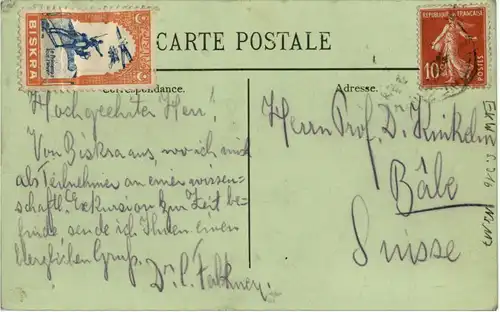 BISKRA
CARTE POSTALE
REPUBLIQUE FRANÇAISE
10c
POSTES
Correspondance.
Adresse.
Hochgeehrter Herr!
Von Biskra aus, wo ich mich
als Teilnehmer an einer wissen-
schaftl. Exkursion zur Zeit be-
finde sende ich Ihnen einen
herzlichen Gruss.
Dr. C.
Herrn Prof. Dr. Kinkelin
Bâle
Suisse